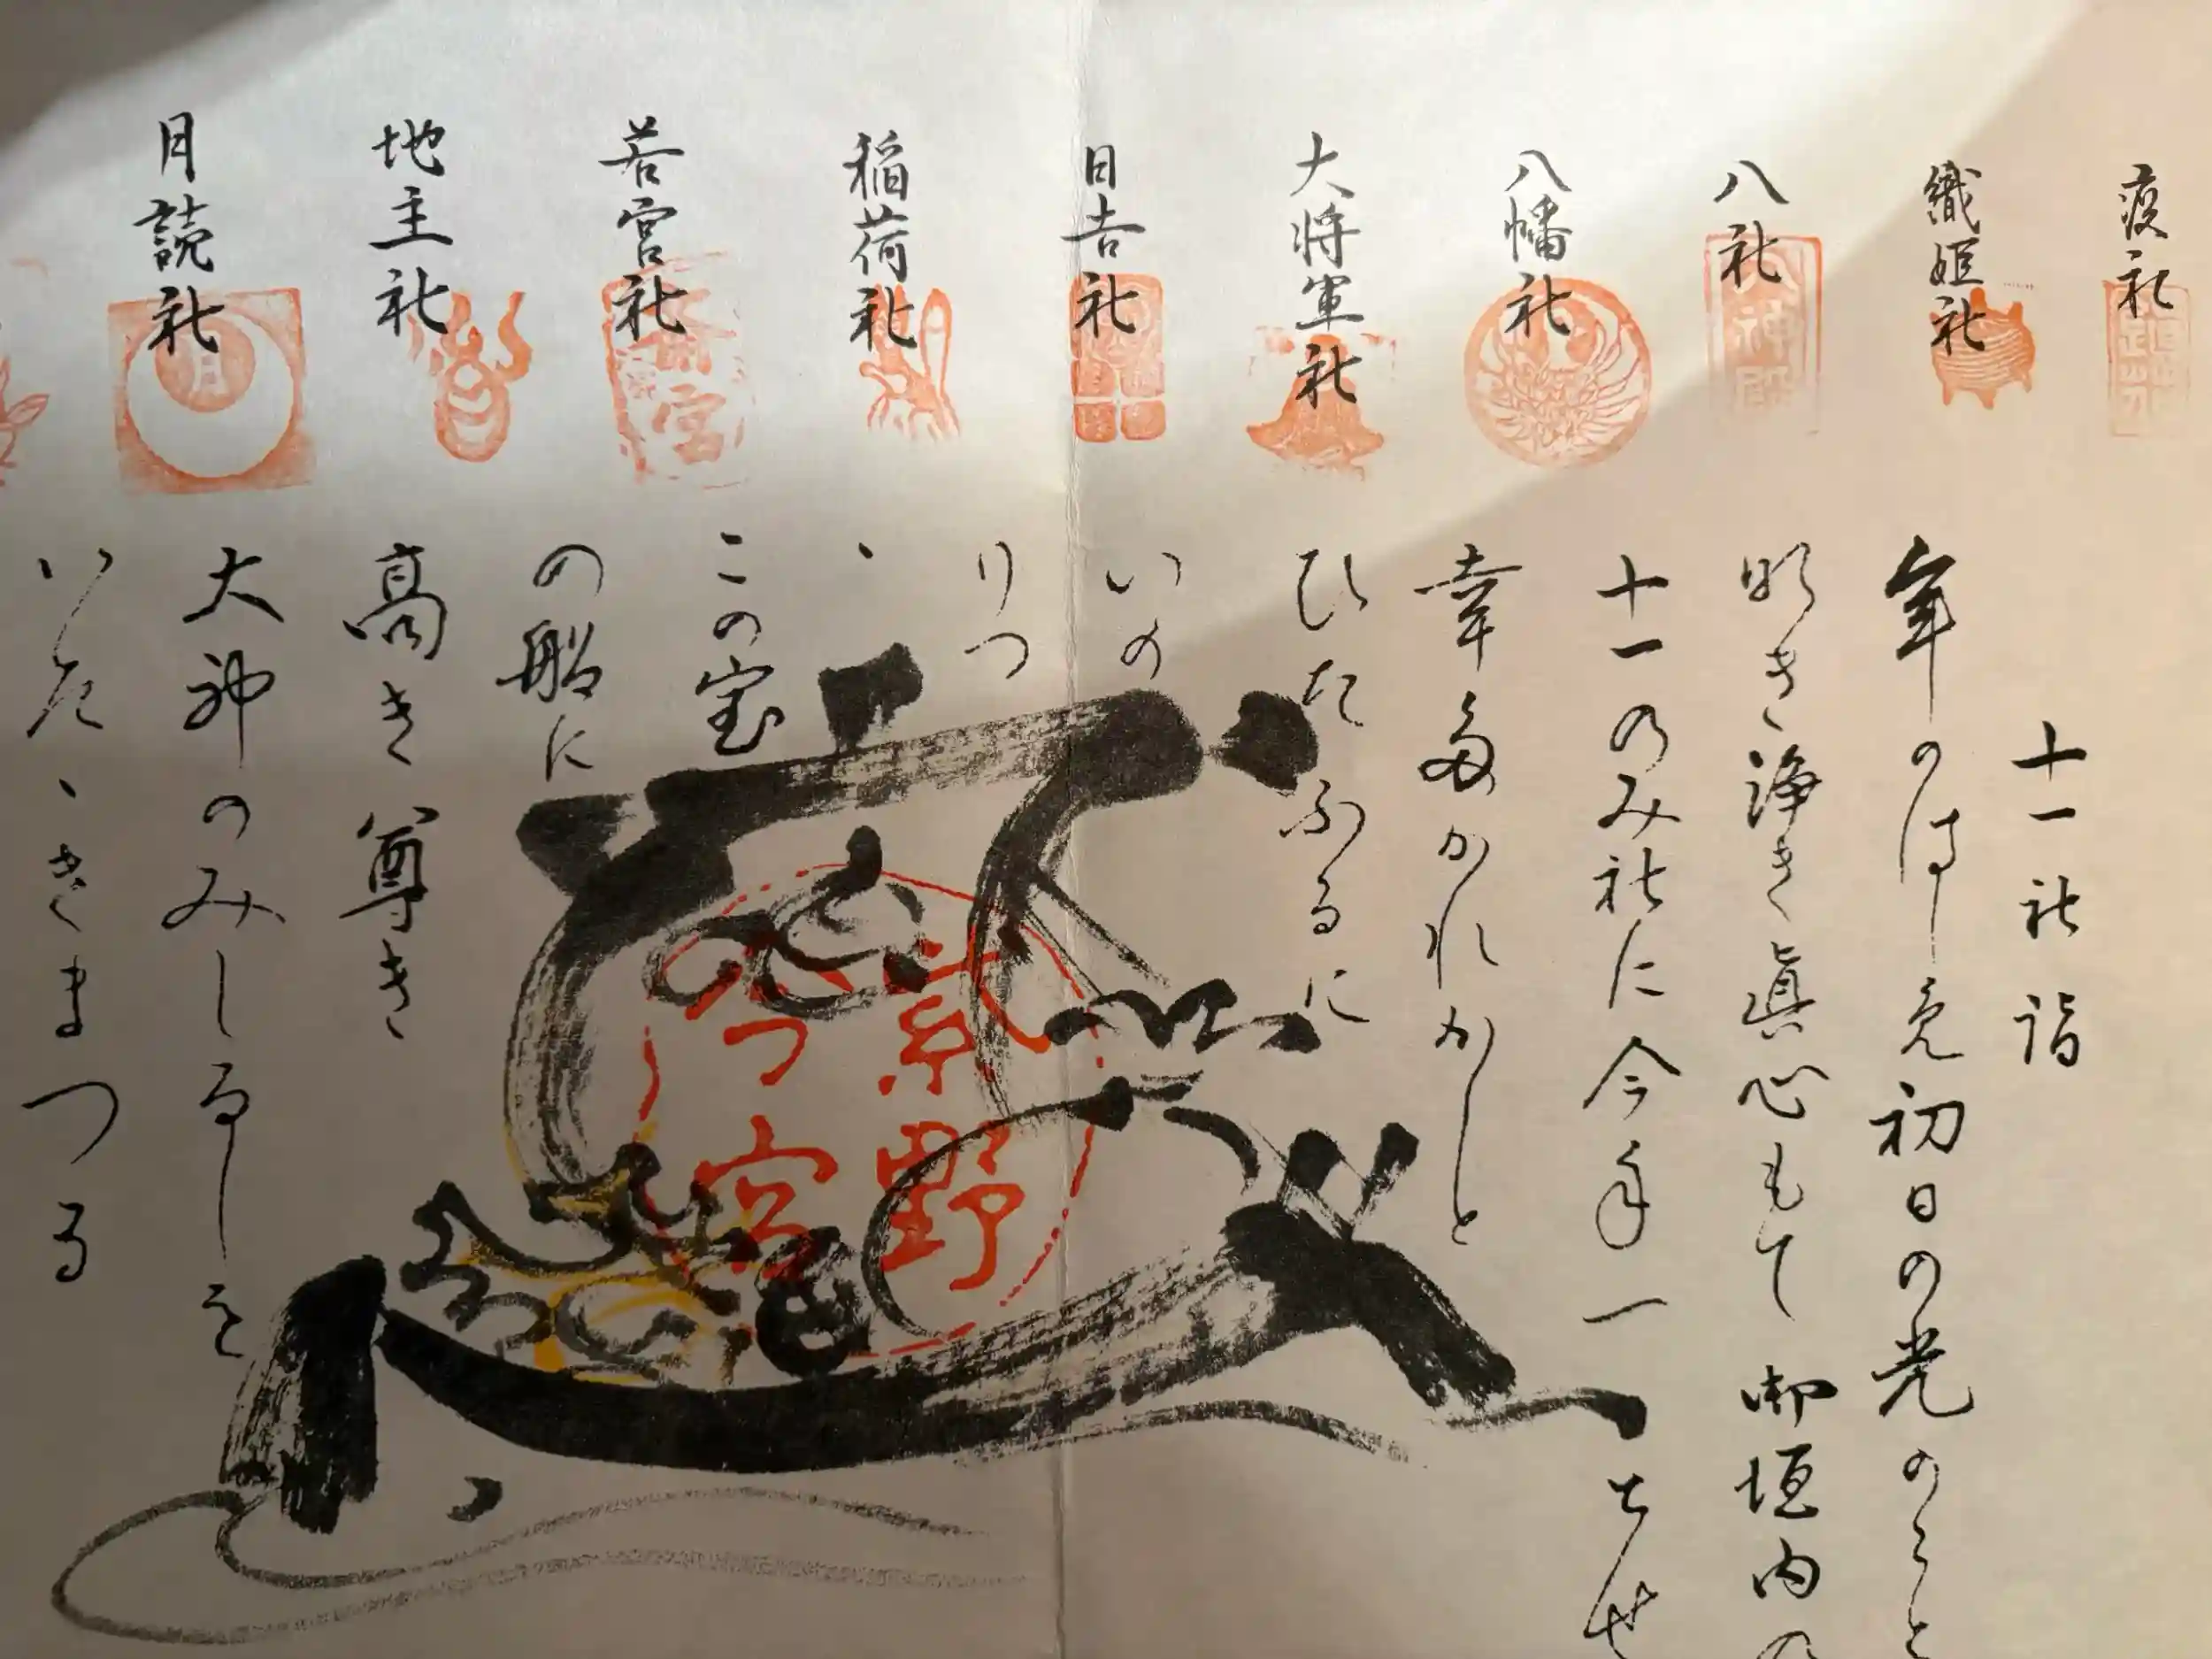 疫社
織姫社
八社
八幡社
大将軍社
日吉社
稲荷社
若宮社
地主社
月読社
十一社詣
年のはしめ初日の光のこと
明き浄き眞心もて御垣内の
十一のみ社に今年一とせ
幸多かれかしと
ひたふるに
いの
りつ
ゝ
この宝
の船に
高き尊き
大神のみしるしを
いたゝきまつる
紫野
今宮
八神殿
若宮
月